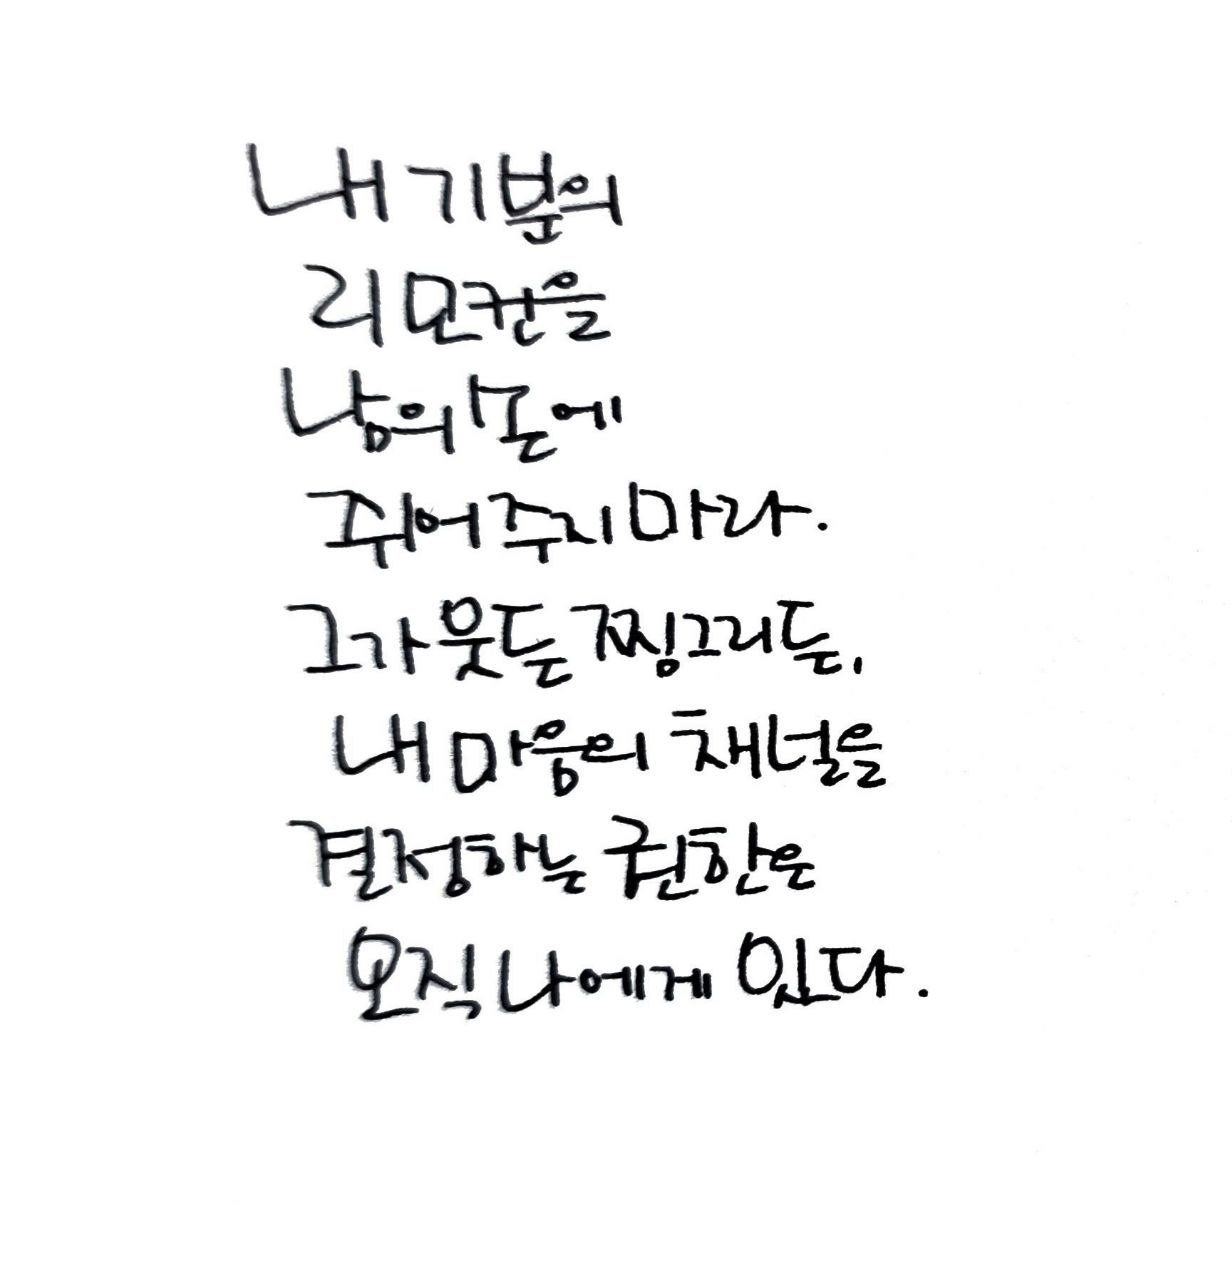 내 기분의
리모컨을
남의 손에
쥐어 주지 마라.
그가 웃든 찡그리든,
내 마음의 채널을
결정하는 권한은
오직 나에게 있다.